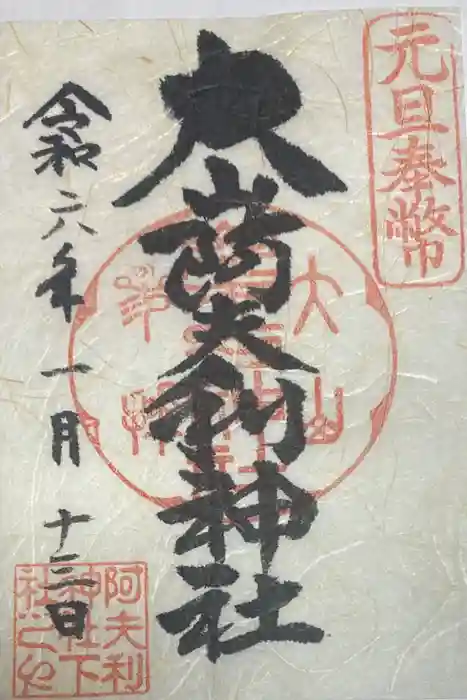 元旦奉幣
大山阿夫利神社
令和六年一月十三日
大山
阿夫利
神社下
社之印